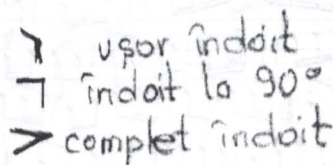 ușor îndoit
îndoit la 90°
complet îndoit